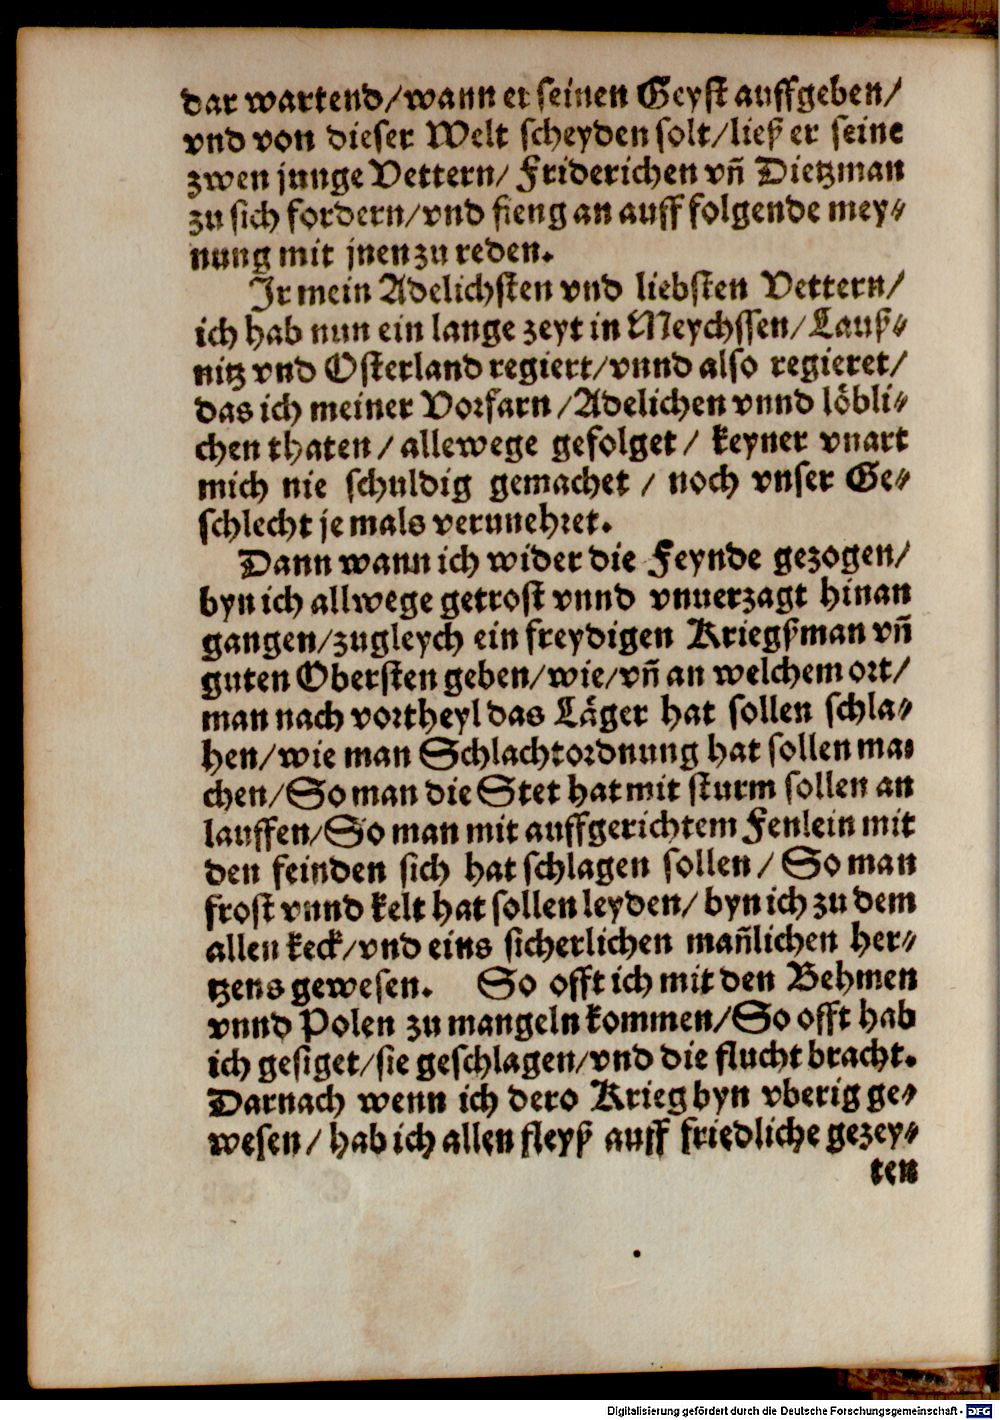 dar wartend/wann er seinen Geyst auffgeben/
vnd von dieser Welt scheyden solt/ließ er seine
zwen junge Vettern/ Friderichen vñ Dietzman
zu sich fordern/vnd fieng an auff folgende mey⸗
nung mit jnen zu reden.
Jr mein Adelichsten vnd liebsten Vettern/
ich hab nun ein lange zeyt in Meychssen/Lauß⸗
nitz vnd Osterland regiert/vnnd also regieret/
das ich meiner Vorfarn/Adelichen vnnd löbli⸗
chen thaten/allewege gefolget/ keyner vnart
mich nie schuldig gemachet / noch vnser Ge⸗
schlecht je mals verunehret.
Dann wann ich wider die Feynde gezogen/
byn ich allwege getrost vnnd vnuerzagt hinan
gangen/zugleych ein freydigen Kriegßman vñ
guten Obersten geben/wie/vñ an welchem ort/
man nach vortheyl das Läger hat sollen schla⸗
hen/wie man Schlachtordnung hat sollen ma⸗
chen/So man die Stet hat mit sturm sollen an
lauffen/So man mit auffgerichtem Fenlein mit
den feinden sich hat schlagen sollen/So man
frost vnnd kelt hat sollen leyden/byn ich zu dem
allen keck/vnd eins sicherlichen mañlichen her⸗
tzens gewesen. So offt ich mit den Behmen
vnnd Polen zu mangeln kommen/So offt hab
ich gesiget/sie geschlagen/vnd die flucht bracht.
Darnach wenn ich dero Krieg byn vberig ge⸗
wesen/hab ich allen fleyß auff friedliche gezey⸗
ten
Digitalisierung gefördert durch die Deutsche Forschungsgemeinschaft - DFG